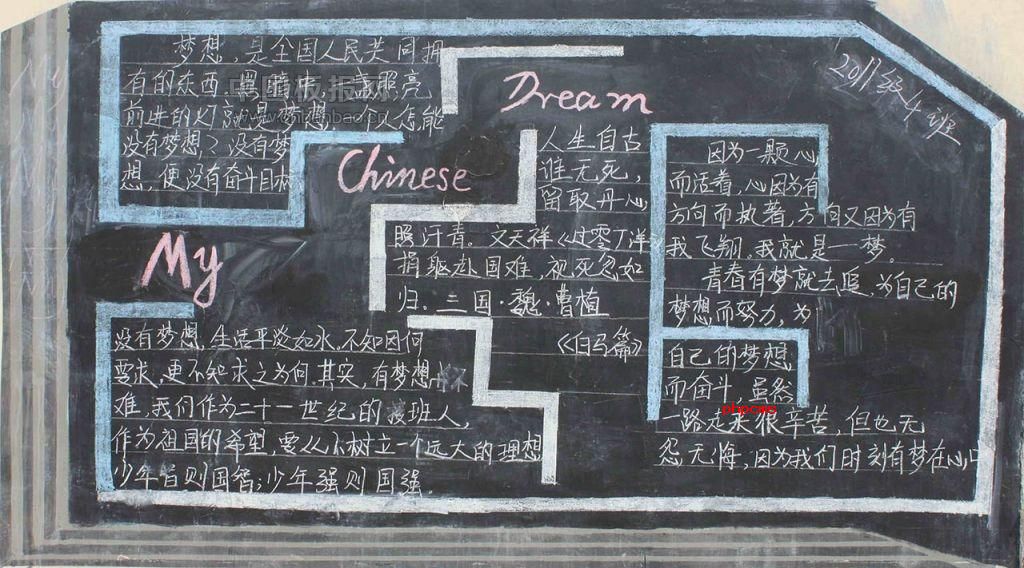 梦想，是全国人民共同拥
有的东西。黑暗中，一盏照亮
前进的灯就是梦想，一个人怎能
没有梦想？没有梦
想，便没有奋斗目标
My
Chinese
Dream
2011级4班
人生自古
谁无死，
留取丹心
照汗青。文天祥《过零丁洋》
捐躯赴国难，视死忽如
归。三国·魏·曹植
《白马篇》
没有梦想，生活平淡如水，不知因何
要求，更不知求之为何，其实，有梦想
难，我们作为二十一世纪的接班人，
作为祖国的希望，要从小树立一个远大的理想
少年智则国智；少年强则国强。
因为一颗心，
而活着，心因为有
方向而执著，方向又因为有
我飞翔。我就是一梦。
青春有梦就去追，为自己的
梦想而努力，为
自己的梦想
而奋斗，虽然
一路走来很辛苦，但也无
怨无悔，因为我们时刻有梦在心中
phpcms